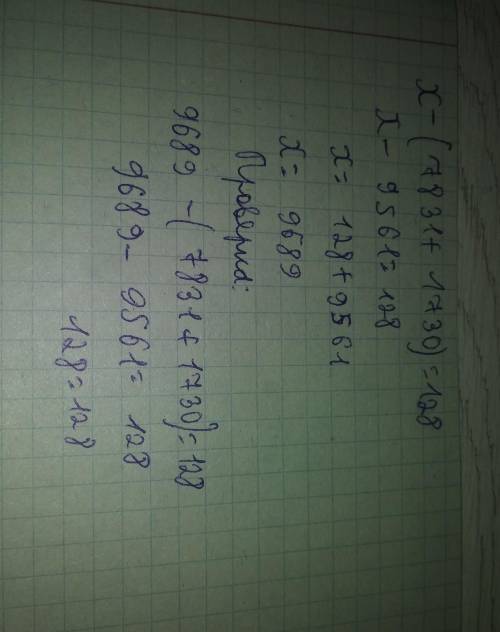 x - (7831 + 1730) = 128
x - 9561 = 128
x = 128 + 9561
x = 9689
Проверка:
9689 - (7831 + 1730) = 128
9689 - 9561 = 128
128 = 128